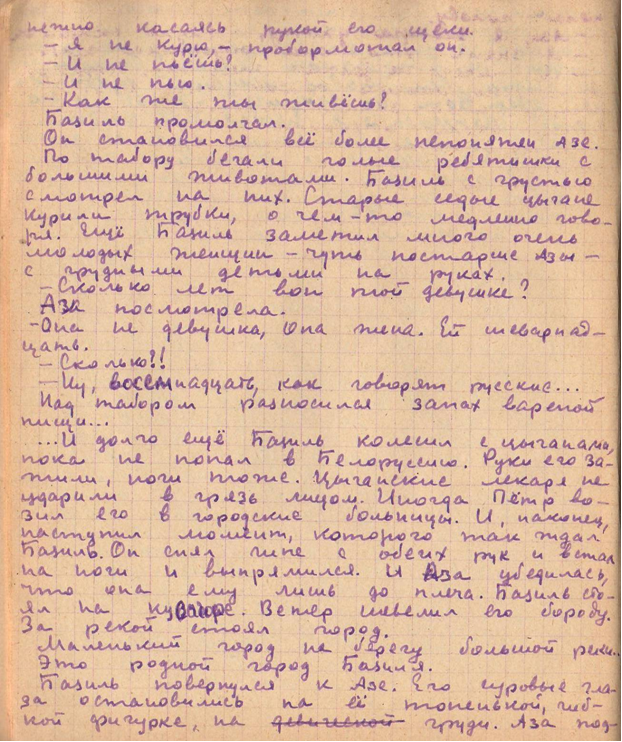 нежно касаясь рукой его щеки.
– Я не курю, – пробормотал он.
– И не пьёшь?
– И не пью.
– Как же ты живёшь?
Базиль промолчал.
Он становился всё более непонятен Азе.
По табору бегали голые ребятишки с
большими животами. Базиль с грустью
смотрел на них. Старые седые цыгане
курили трубки, о чём-то медленно гово-
ря. Ещё Базиль заметил много очень
молодых женщин – чуть постарше Азы –
с грудными детьми на руках.
– Сколько лет вон той девушке?
Аза посмотрела.
– Она не девушка, Она жена. Ей шеварнад-
цать.
– Сколько?!!
– Ну, восемнадцать, как говорят русские...
Над табором разносился запах вареной
пищи...
...И долго ещё Базиль колесил с цыганами,
пока не попал в Белоруссию. Руки его за-
жили, ноги тоже. Цыганские лекаря не
ударили в грязь лицом. Иногда Пётр во-
зил его в городские больницы. И, наконец,
наступил момент, которого так ждал
Базиль. Он снял гипс с обеих рук и встал
на ноги и выпрямился. И Аза убедилась,
что она ему лишь до плеча. Базиль сто-
ял на
Ветер шевелил его бороду.
За рекой стоял город.
Маленький город на берегу большой реки..
Это родной город Базиля.
Базиль повернулся к Азе. Его суровые гла-
за остановились на её тоненькой, гиб-
кой фигурке, на девической груди. Аза под-